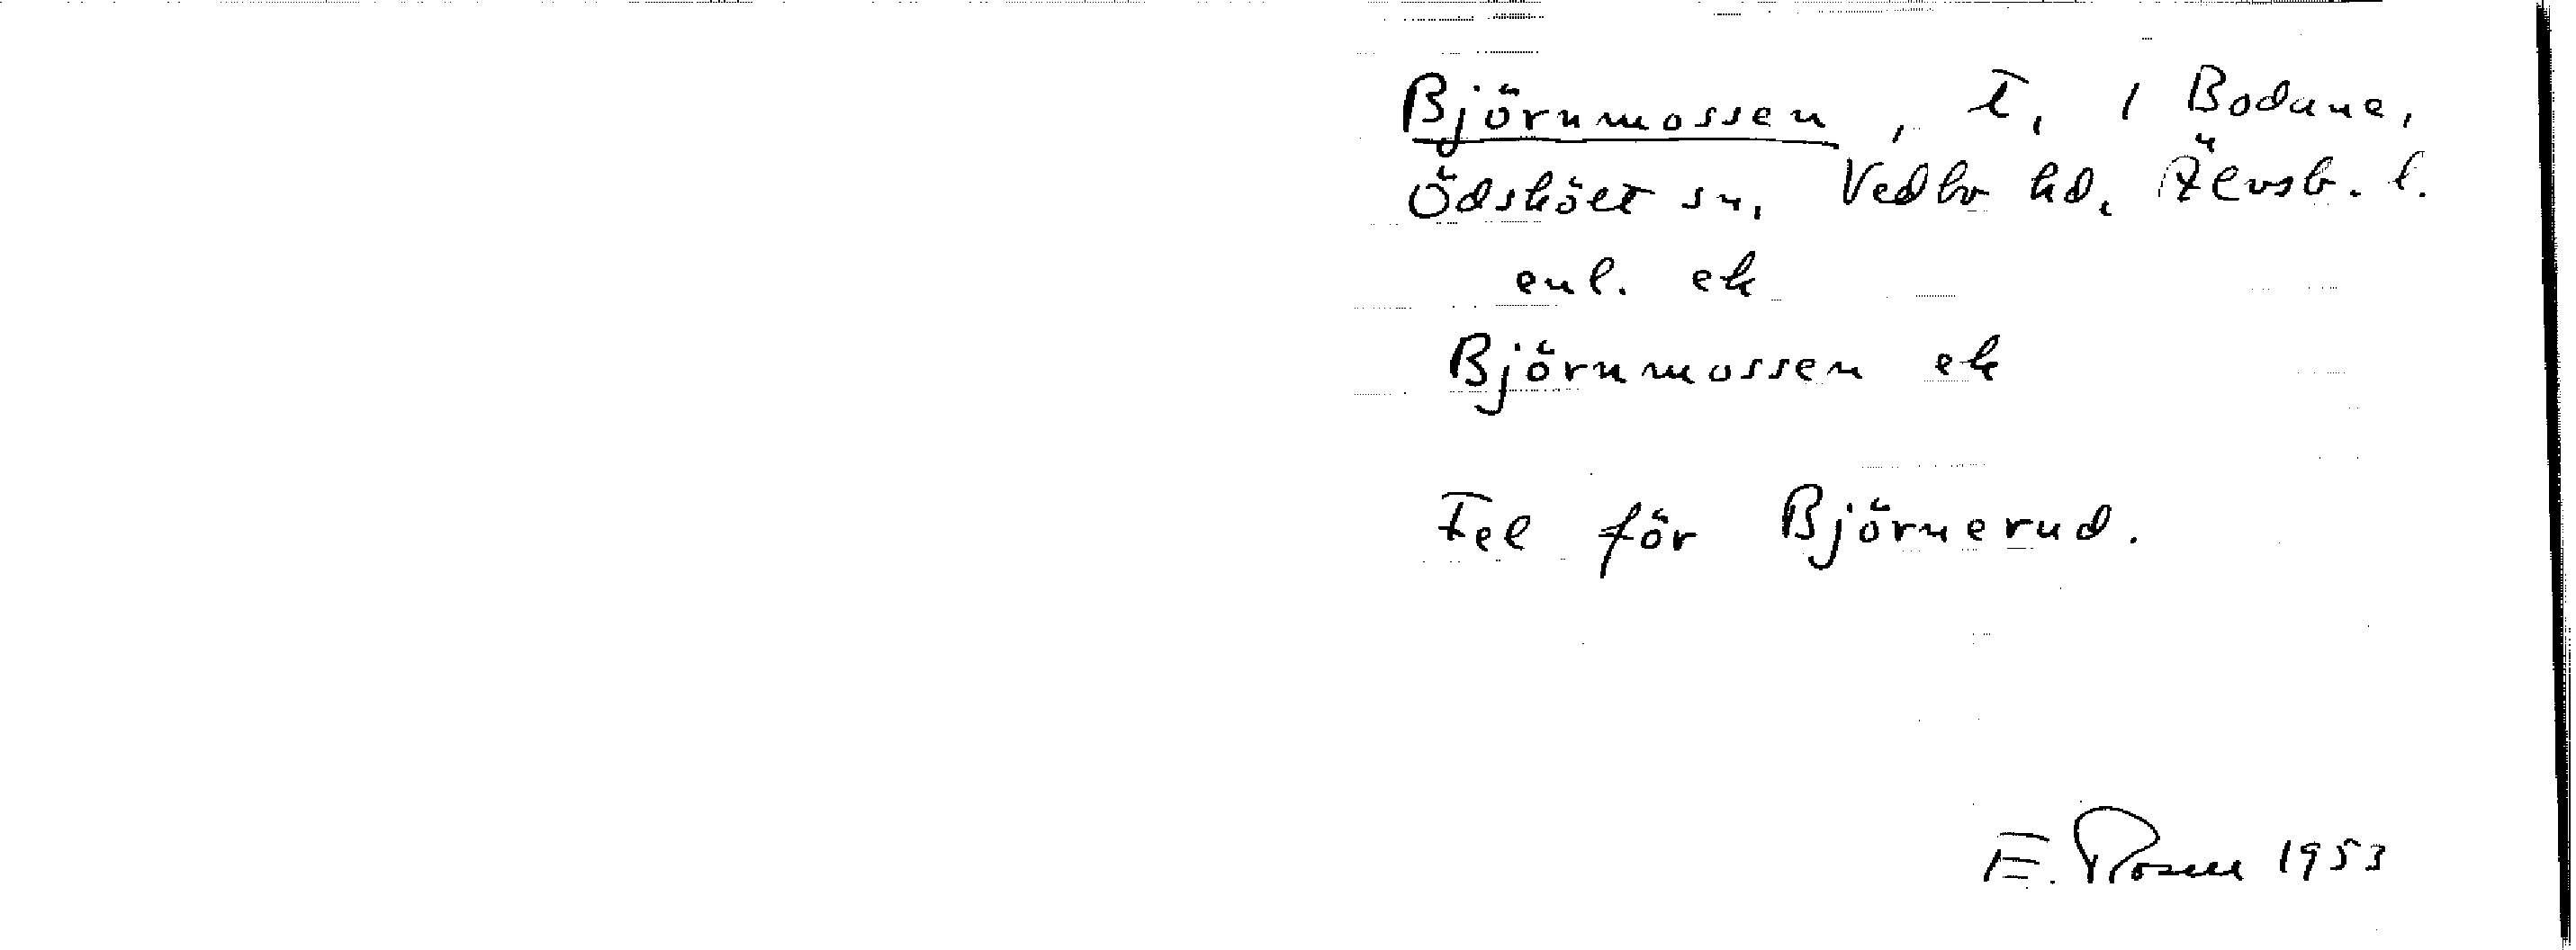 Björnmossen, t. / Bodane,
Ödskölt sn, Vedbo hd, Älvsb. l.
enl. ek
Björnmossen ek
Fel för Björnerud.
E. Rosell 1953